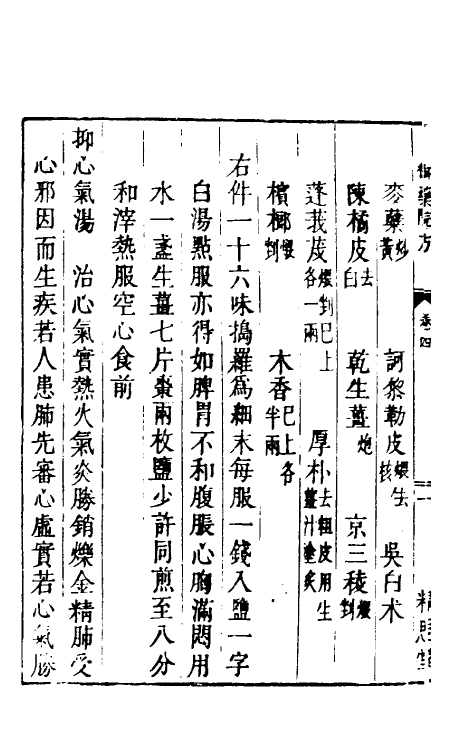 御藥院方 卷四 一 精思堂
麥蘗炒黃 訶黎勒皮煨去核 吳白朮
陳橘皮去白 乾生薑炮 京三稜煨剉
蓬莪茂煨剉已上各一兩 厚朴去粗皮用生薑汁塗炙
檳榔煨剉 木香已上各半兩
右件一十六味搗羅為細末每服一錢入鹽一字
白湯點服亦得如脾胃不和腹脹心胸滿悶用
水一盞生薑七片棗兩枚鹽少許同煎至八分
和滓熱服空心食前
抑心氣湯 治心氣實熱火氣炎勝銷爍金精肺受
心邪因而生疾若人患肺先審心虛實若心氣勝